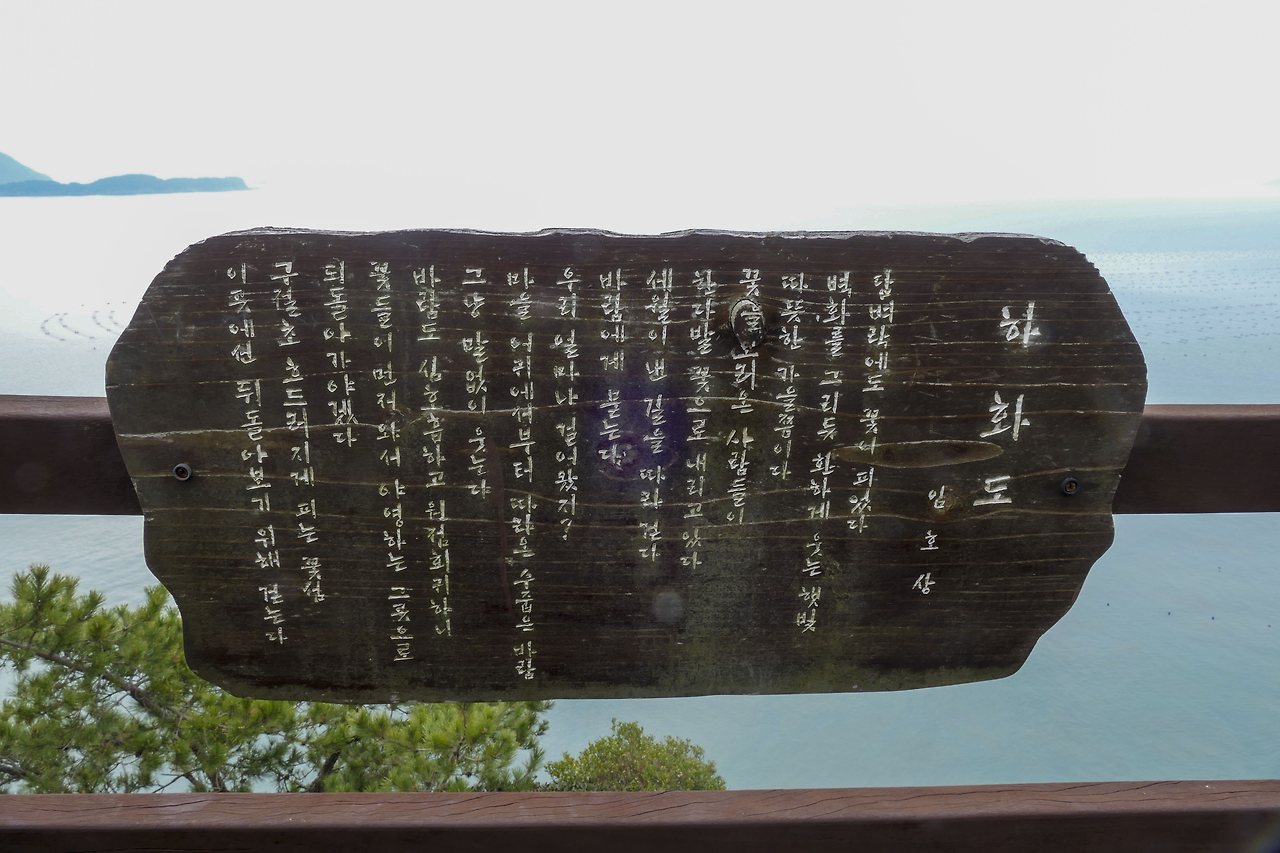 하화도
임호상
담벼락에도 꽃이 피었다
벽화를 그리듯 환하게 웃는 햇빛
따뜻한 가을점이다
꽃 보러온 사람들이
한다발 꽃으로 내리고 있다
세월이 낸 길을 따라 걷다
바람에게 묻는다
우리 얼마나 걸어왔지?
마을 어귀에서부터 따라온 수줍은 바람
그냥 말없이 웃는다
바람도 심호흡하고 원점회귀하니
꽃들이 먼저 와서 야영하는 그곳으로
되돌아가야겠다
구절초 흐드러지게 피는 꽃섬
이곳에선 뒤돌아보기 위해 걷는다